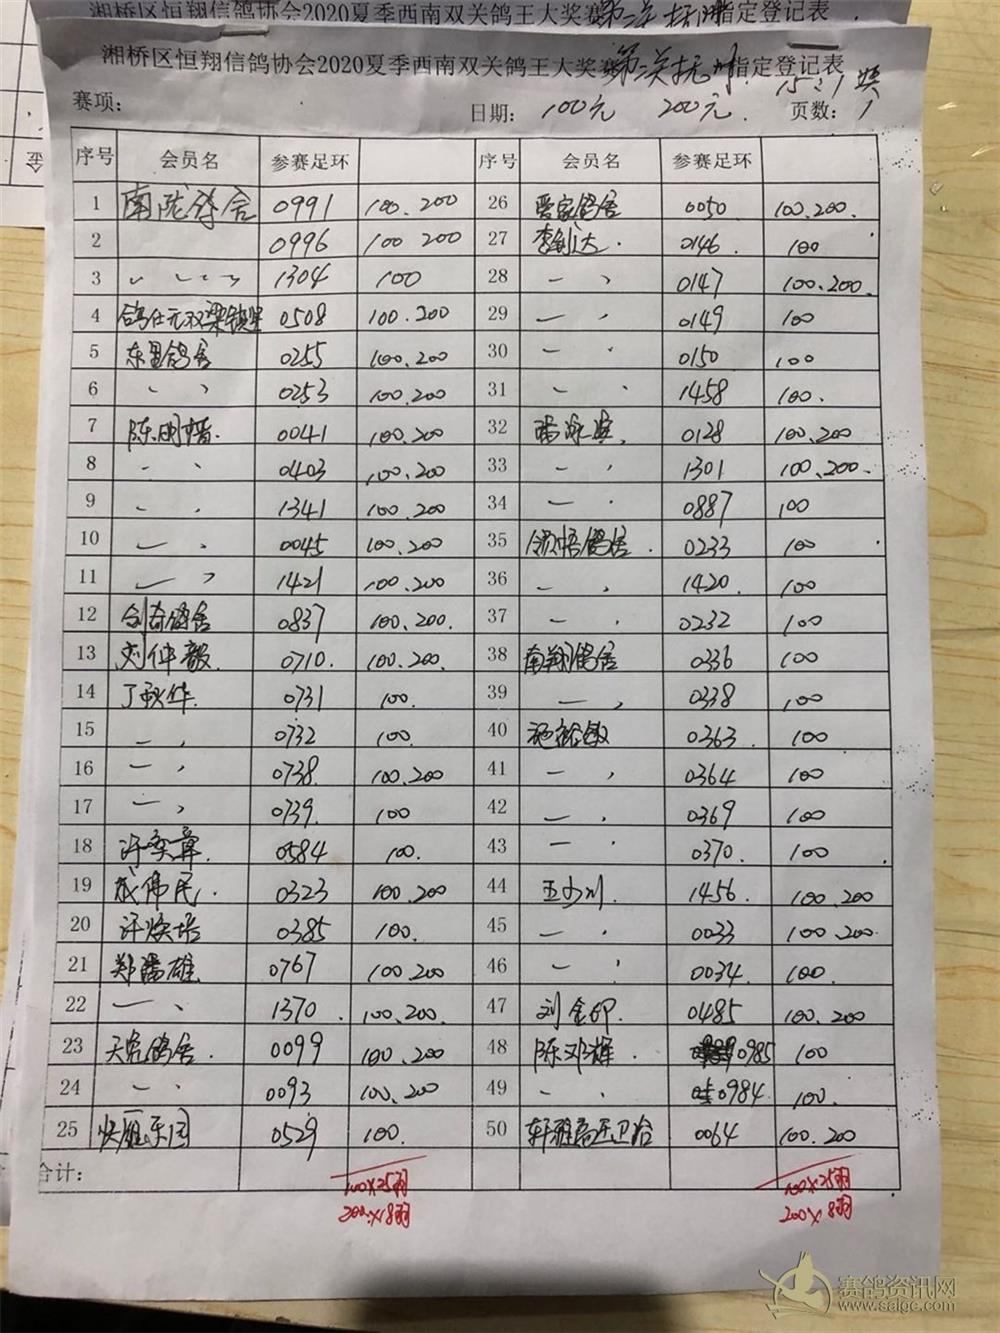 湘桥区恒翔信鸽协会2020夏季西南双关鸽王大奖赛 指定登记表
湘桥区恒翔信鸽协会2020夏季西南双关鸽王大奖赛 第二关抚州 指定登记表
15:1
赛项: 日期: 100元 200元 页数: 1
序号 会员名 参赛足环 序号 会员名 参赛足环
1 南陇 舍 0991 100.200 26 0050 100.200.
2 0996 100 200 27 李 达 0146 100
3 1304 100 28 0147 100.200.
4 鸽仕元双梁 0508 100.200 29 0149 100
5 东里鸽舍 0255 100.200 30 0150 100
6 0253 100.200 31 1458 100.
7 陈明 0041 100.200 32 0128 100.200
8 0403 100.200 33 1301 100.200.
9 1341 100.200 34 0887 100
10 0045 100.200 35 领悟鸽舍 0233 100
11 1421 100.200 36 1420 100
12 剑奇鸽舍 0837 100.200. 37 0232 100
13 刘仲毅 0710. 100.200. 38 南翔鸽舍 0336 100
14 丁秋华 0731 100. 39 0338 100
15 0732 100. 40 0363. 100
16 0738. 100.200 41 0364 100
17 0739. 100 42 0369 100
18 许奕章 0584 100. 43 0370. 100
19 成伟民 0323 100.200 44 王少川 1456. 100.200
20 许焕培 0385 100. 45 0033 100.200
21 郑 雄 0767 100.200 46 0034. 100
22 1370. 100.200. 47 刘金 0485 100.200
23 天 鸽舍 0099 100.200 48 陈邓辉 0985 100
24 0093 100.200 49 0984 100.
25 0529 100. 50 0064 100.200
合计:
100×25羽 100×25羽
200×18羽 200×8羽
赛鸽资讯网
www.saige.com